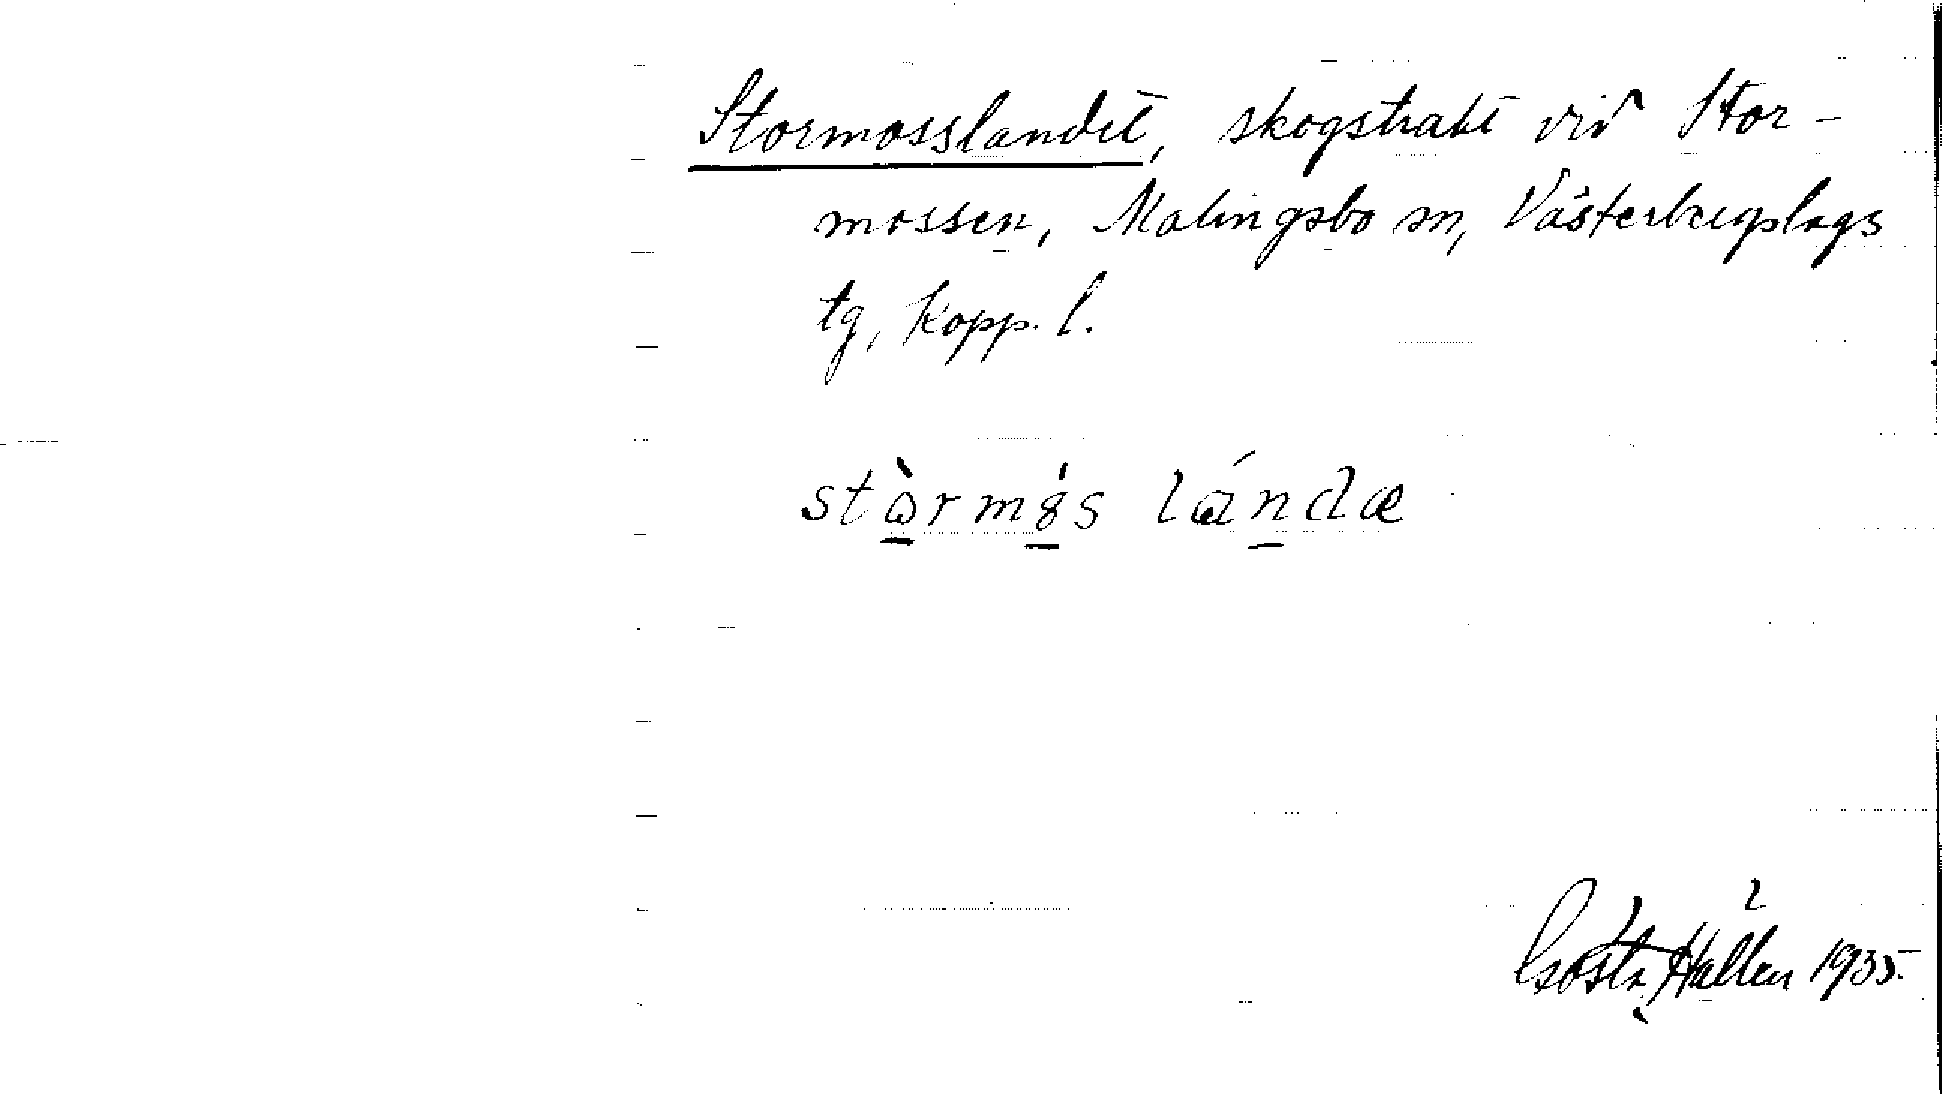 Stormosslandet, skogstrakt vid Stor-
mossen, Malingsbo sn, Västerbergslags
tg, Kopp. l.
stὼrmo̍s lándæ
Gösta Hallen 1935.